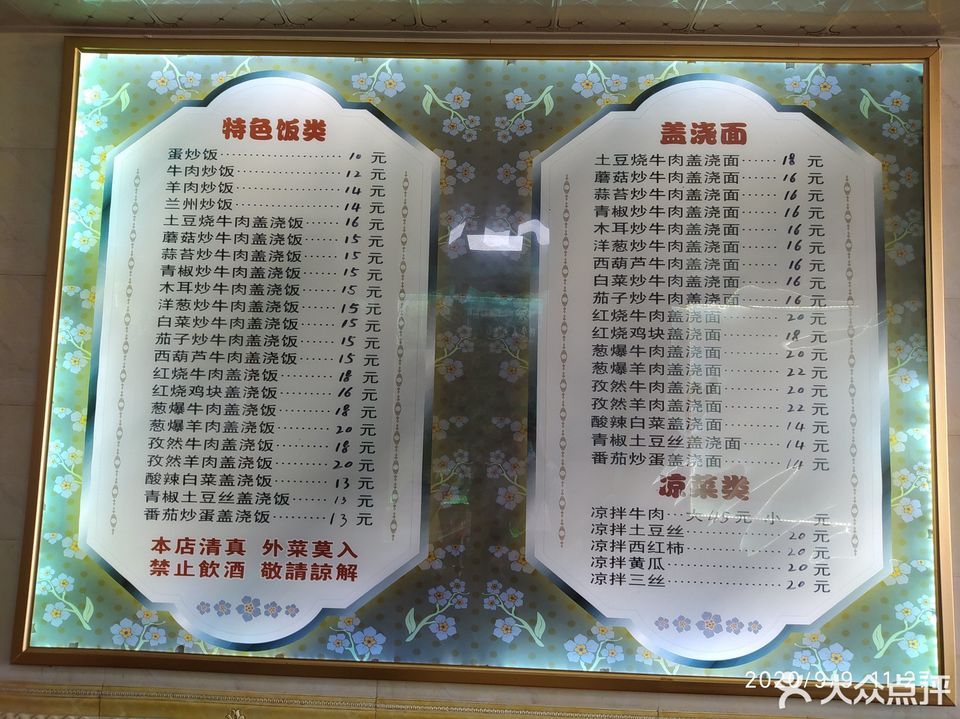 特色饭类
蛋炒饭 10 元
牛肉炒饭 12 元
羊肉炒饭 14 元
兰州炒饭 14 元
土豆烧牛肉盖浇饭 16 元
蘑菇炒牛肉盖浇饭 15 元
蒜苔炒牛肉盖浇饭 15 元
青椒炒牛肉盖浇饭 15 元
木耳炒牛肉盖浇饭 15 元
洋葱炒牛肉盖浇饭 15 元
白菜炒牛肉盖浇饭 15 元
茄子炒牛肉盖浇饭 15 元
西葫芦牛肉盖浇饭 15 元
红烧牛肉盖浇饭 18 元
红烧鸡块盖浇饭 16 元
葱爆牛肉盖浇饭 18 元
葱爆羊肉盖浇饭 20 元
孜然牛肉盖浇饭 18 元
孜然羊肉盖浇饭 20 元
酸辣白菜盖浇饭 13 元
青椒土豆丝盖浇饭 13 元
番茄炒蛋盖浇饭 13 元
本店清真 外菜莫入
禁止飲酒 敬請諒解
盖浇面
土豆烧牛肉盖浇面 18 元
蘑菇炒牛肉盖浇面 16 元
蒜苔炒牛肉盖浇面 16 元
青椒炒牛肉盖浇面 16 元
木耳炒牛肉盖浇面 16 元
洋葱炒牛肉盖浇面 16 元
西葫芦牛肉盖浇面 16 元
白菜炒牛肉盖浇面 16 元
茄子炒牛肉盖浇面 16 元
红烧牛肉盖浇面 20 元
红烧鸡块盖浇面 18 元
葱爆牛肉盖浇面 20 元
葱爆羊肉盖浇面 22 元
孜然牛肉盖浇面 20 元
孜然羊肉盖浇面 22 元
酸辣白菜盖浇面 14 元
青椒土豆丝盖浇面 14 元
番茄炒蛋盖浇面 14 元
凉菜类
凉拌牛肉 大 元 小 元
凉拌土豆丝 20 元
凉拌西红柿 20 元
凉拌黄瓜 20 元
凉拌三丝 20 元
大众点评